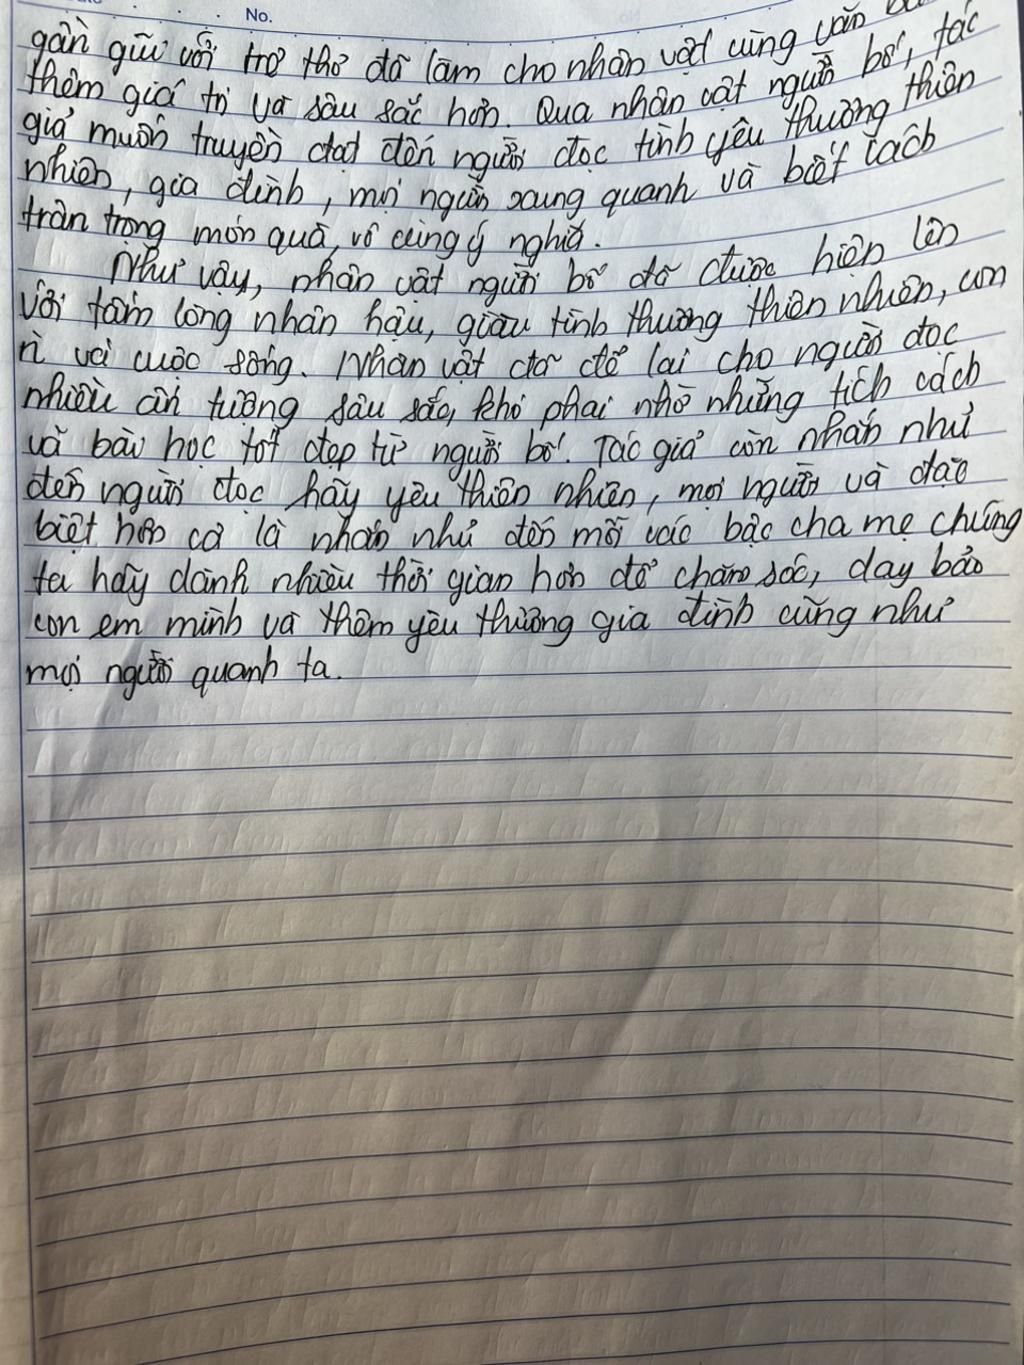 No.
gần gũi với trẻ thơ đã làm cho nhân vật cùng văn
thêm giá trị và sâu sắc hơn. Qua nhân vật người bố, tác
giả muốn truyền đạt đến người đọc tình yêu thương thiên
nhiên, gia đình, mọi người xung quanh và biết cách
trân trọng món quà, vô cùng ý nghĩa.
Như vậy, nhân vật người bố đã được hiện lên
với tấm lòng nhân hậu, giàu tình thương thiên nhiên, con
n và cuộc sống. Nhân vật đã để lại cho người đọc
nhiều ấn tượng sâu sắc, khó phai nhờ những tích cách
và bài học tốt đẹp từ người bố. Tác giả còn nhắn nhủ
đến người đọc hãy yêu thiên nhiên, mọi người và đặc
biệt hơn cả là nhắn nhủ đến mỗi các bậc cha mẹ chúng
ta hãy dành nhiều thời gian hơn để chăm sóc, dạy bảo
con em mình và thêm yêu thương gia đình cũng như
mọi người quanh ta.